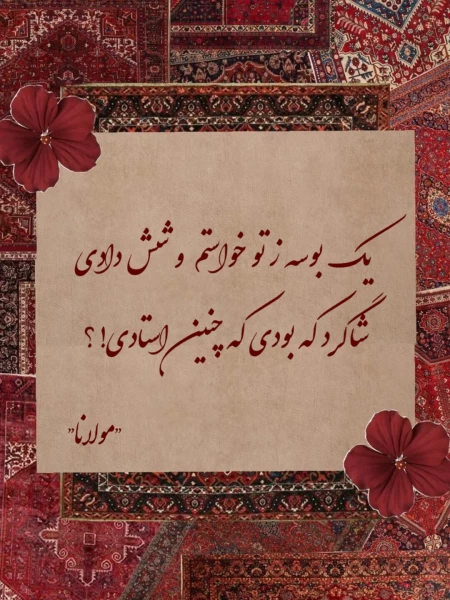 یک بوسه ز تو خواستم و شش دادی
شاگرد که بودی که چنین استادی! ؟
"مولانا"